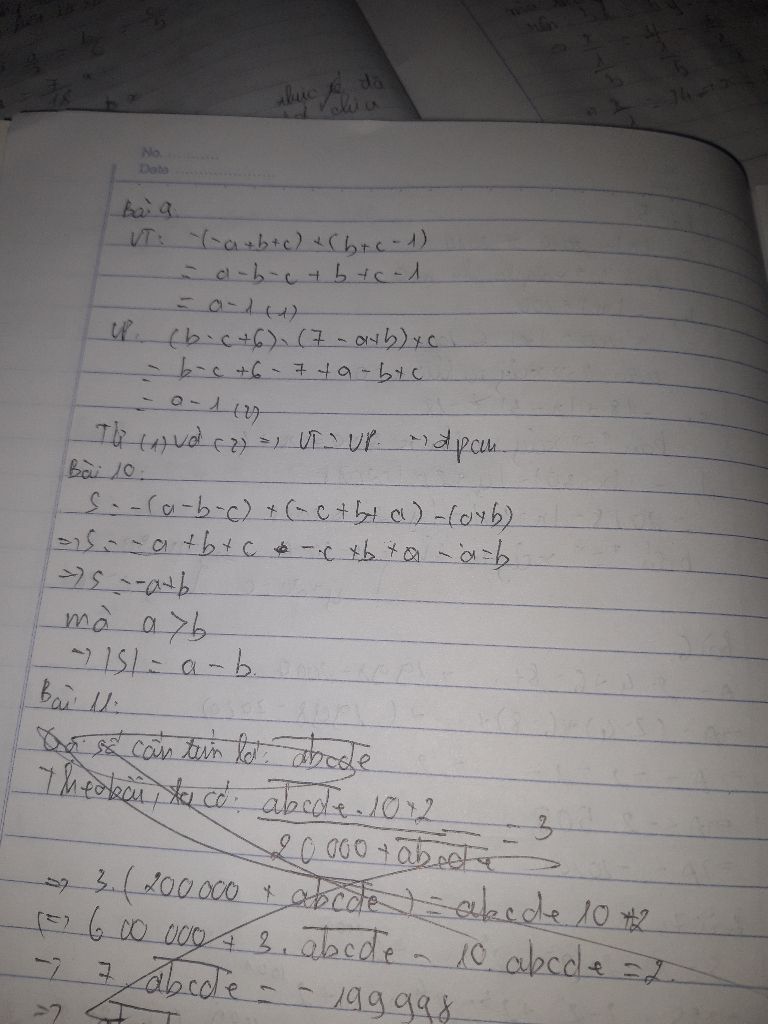 No.
Date
Bài 9.
VT: -(-a+b+c) + (b+c-1)
= a-b-c + b+c-1
= a-1 (1)
VP. (b-c+6)-(7-a+b)+c
= b-c+6-7+a-b+c
= a-1 (2)
Từ (1) và (2) => VT = VP. -> đpcm.
Bài 10:
S = -(a-b-c) + (-c+b+a) -(a+b)
=> S = -a+b+c -c+b+a -a-b
=> S = -a+b
mà a>b
-> |S| = a-b.
Bài 11:
Gọi số cần tìm là: abcde
Theo bài, ta có: abcde.10+2
= 3
20 000 + abcde
=> 3.(200000 + abcde) = abcde 10 +2
(=> 600 000 + 3.abcde - 10.abcde = 2.
-> 7 abcde = -199998
=>